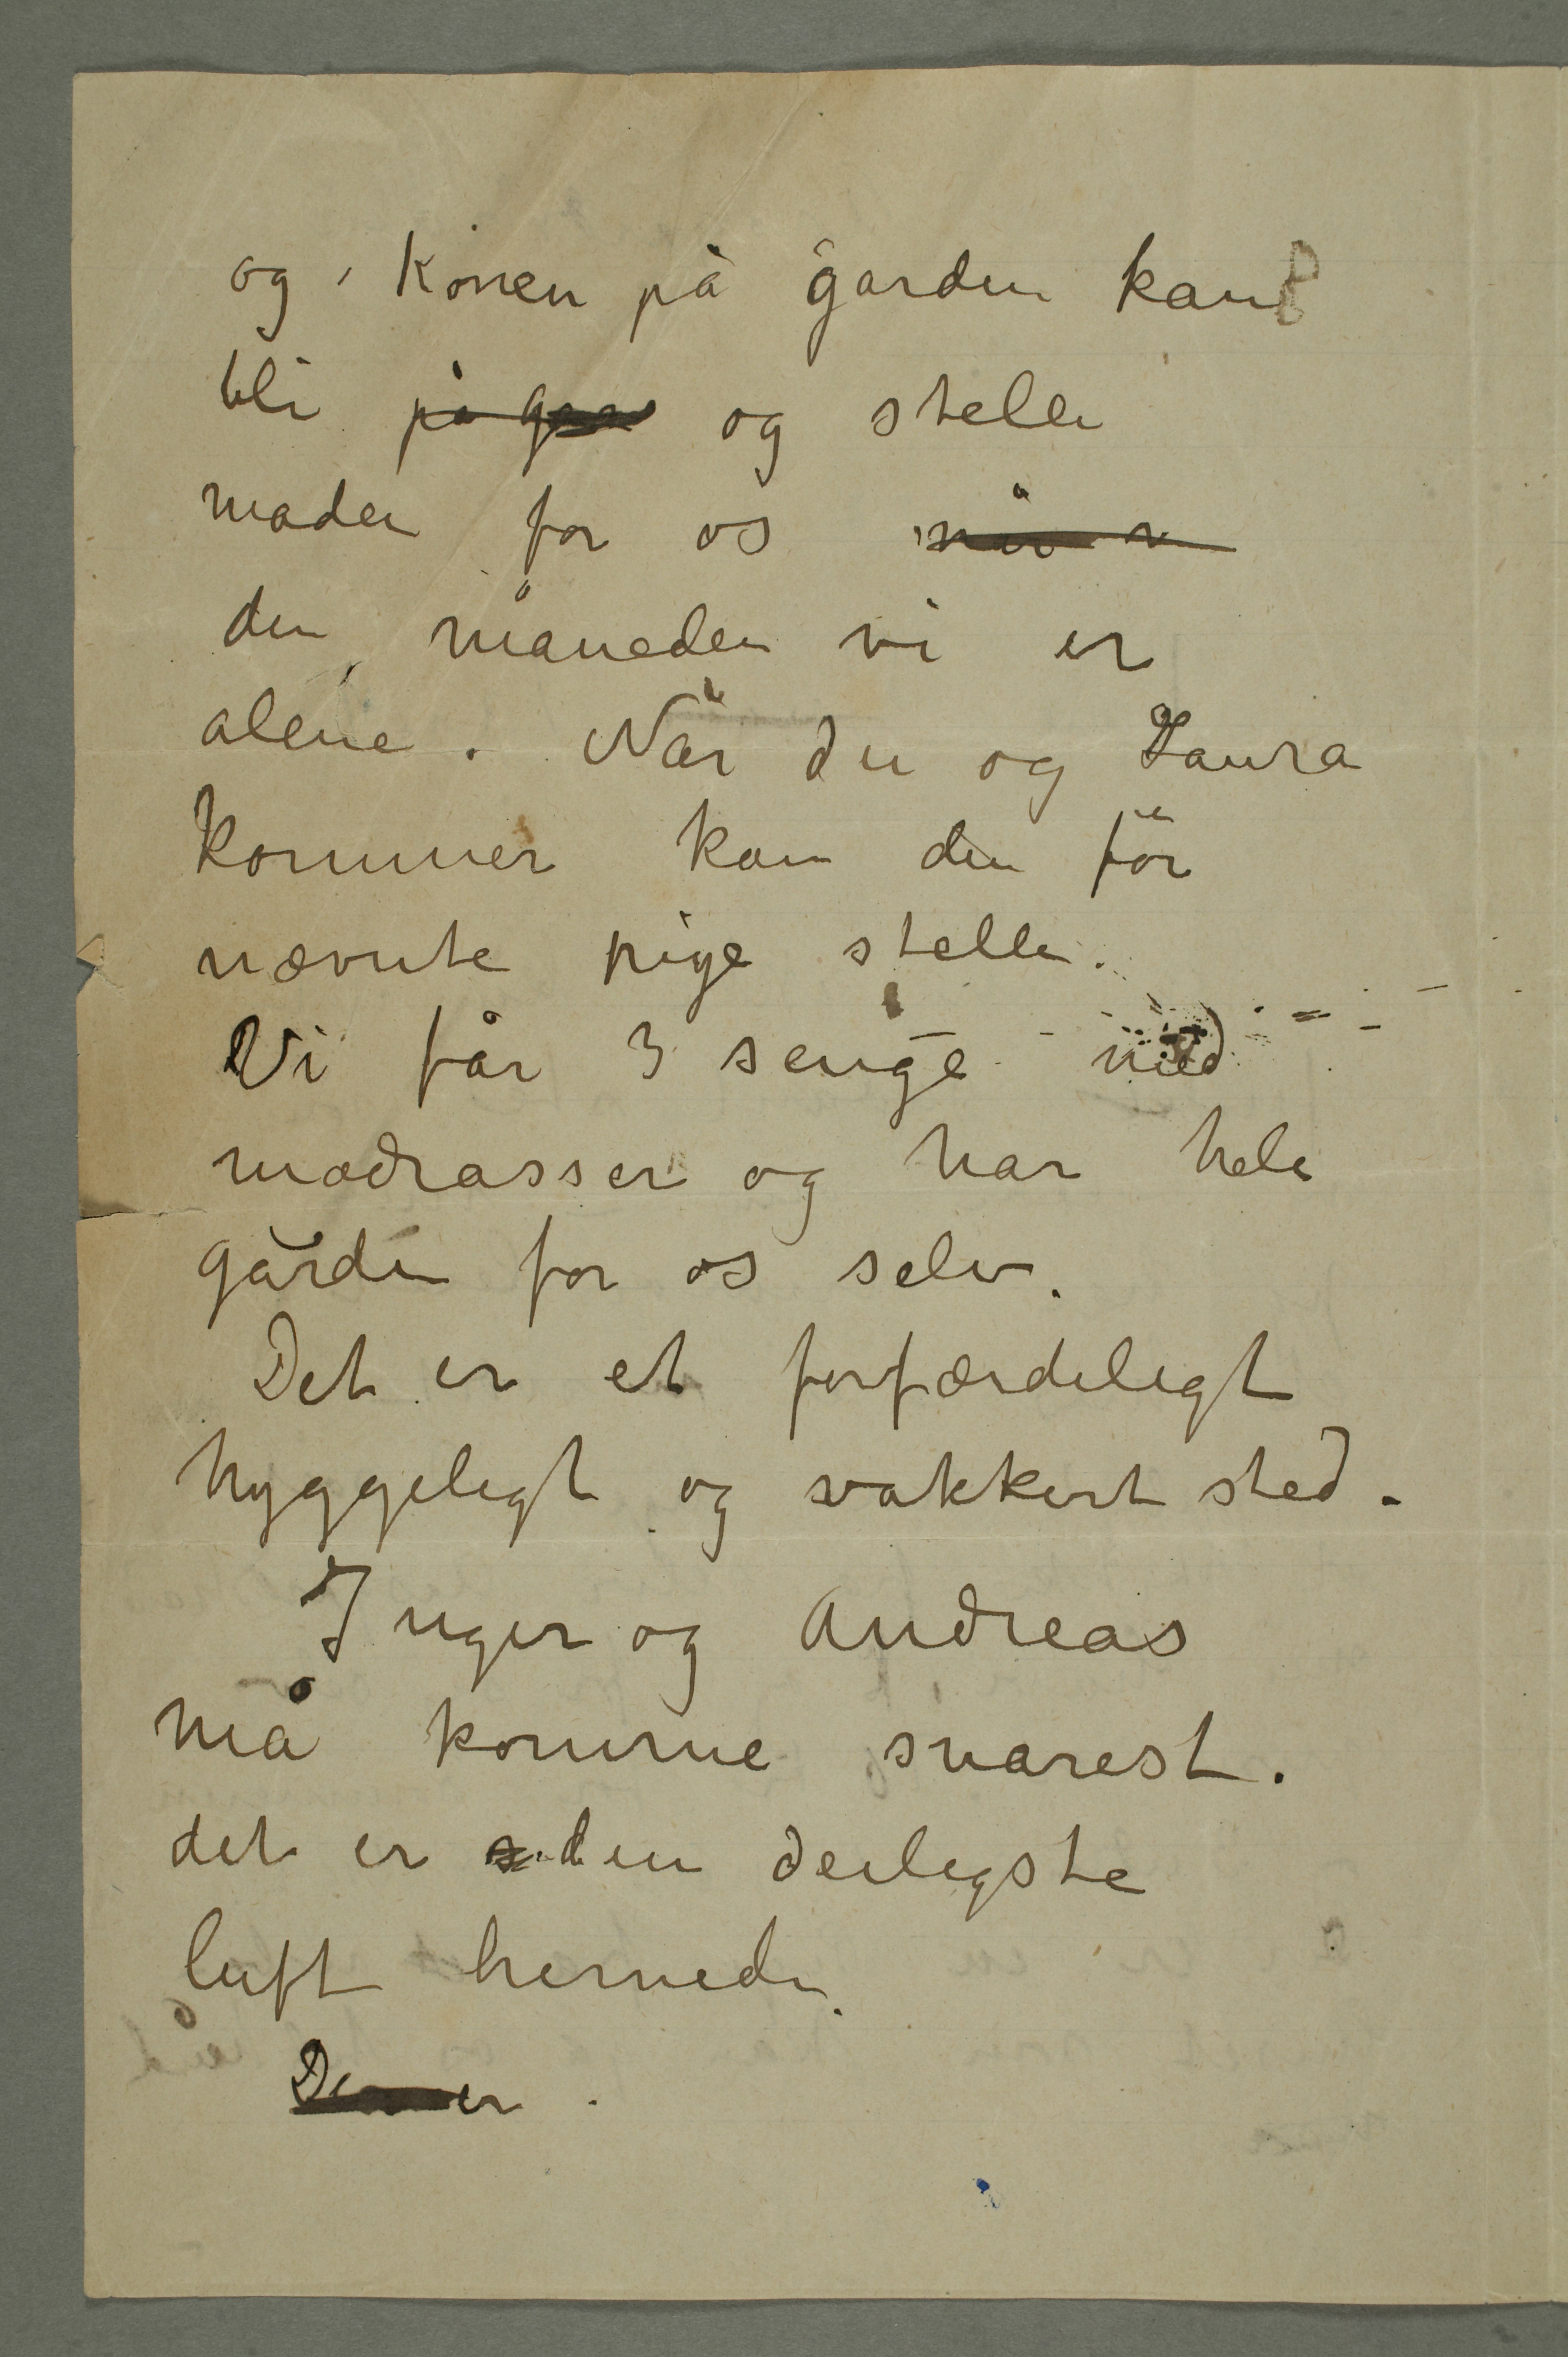 og Konen på garden kan
bli på gar og stelle
maden for os når v
den måneden vi er
alene. När du og Laura
kommer kan den för
nævnte pige stelle.
Vi får 3 senge med
madrasser og har hele
gården for os selv.
Det er et forfærdeligt
hyggeligt og vakkert sted.
Inger og Andreas
må komme snarest.
det er den deiligste
luft hernede.